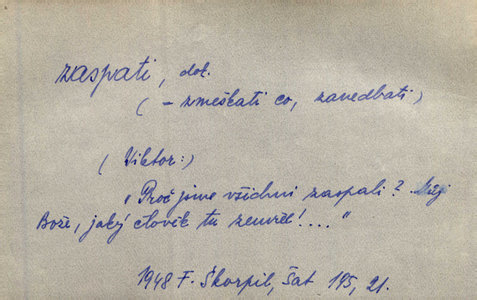 zaspati, dok.
( – zmeškati co, zanedbati)
(Viktor:)
„Proč jsme všichni zaspali? Můj
Bože, jaký člověk tu zemřel!...."
1948 F. Škorpil, Šat 195, 21.